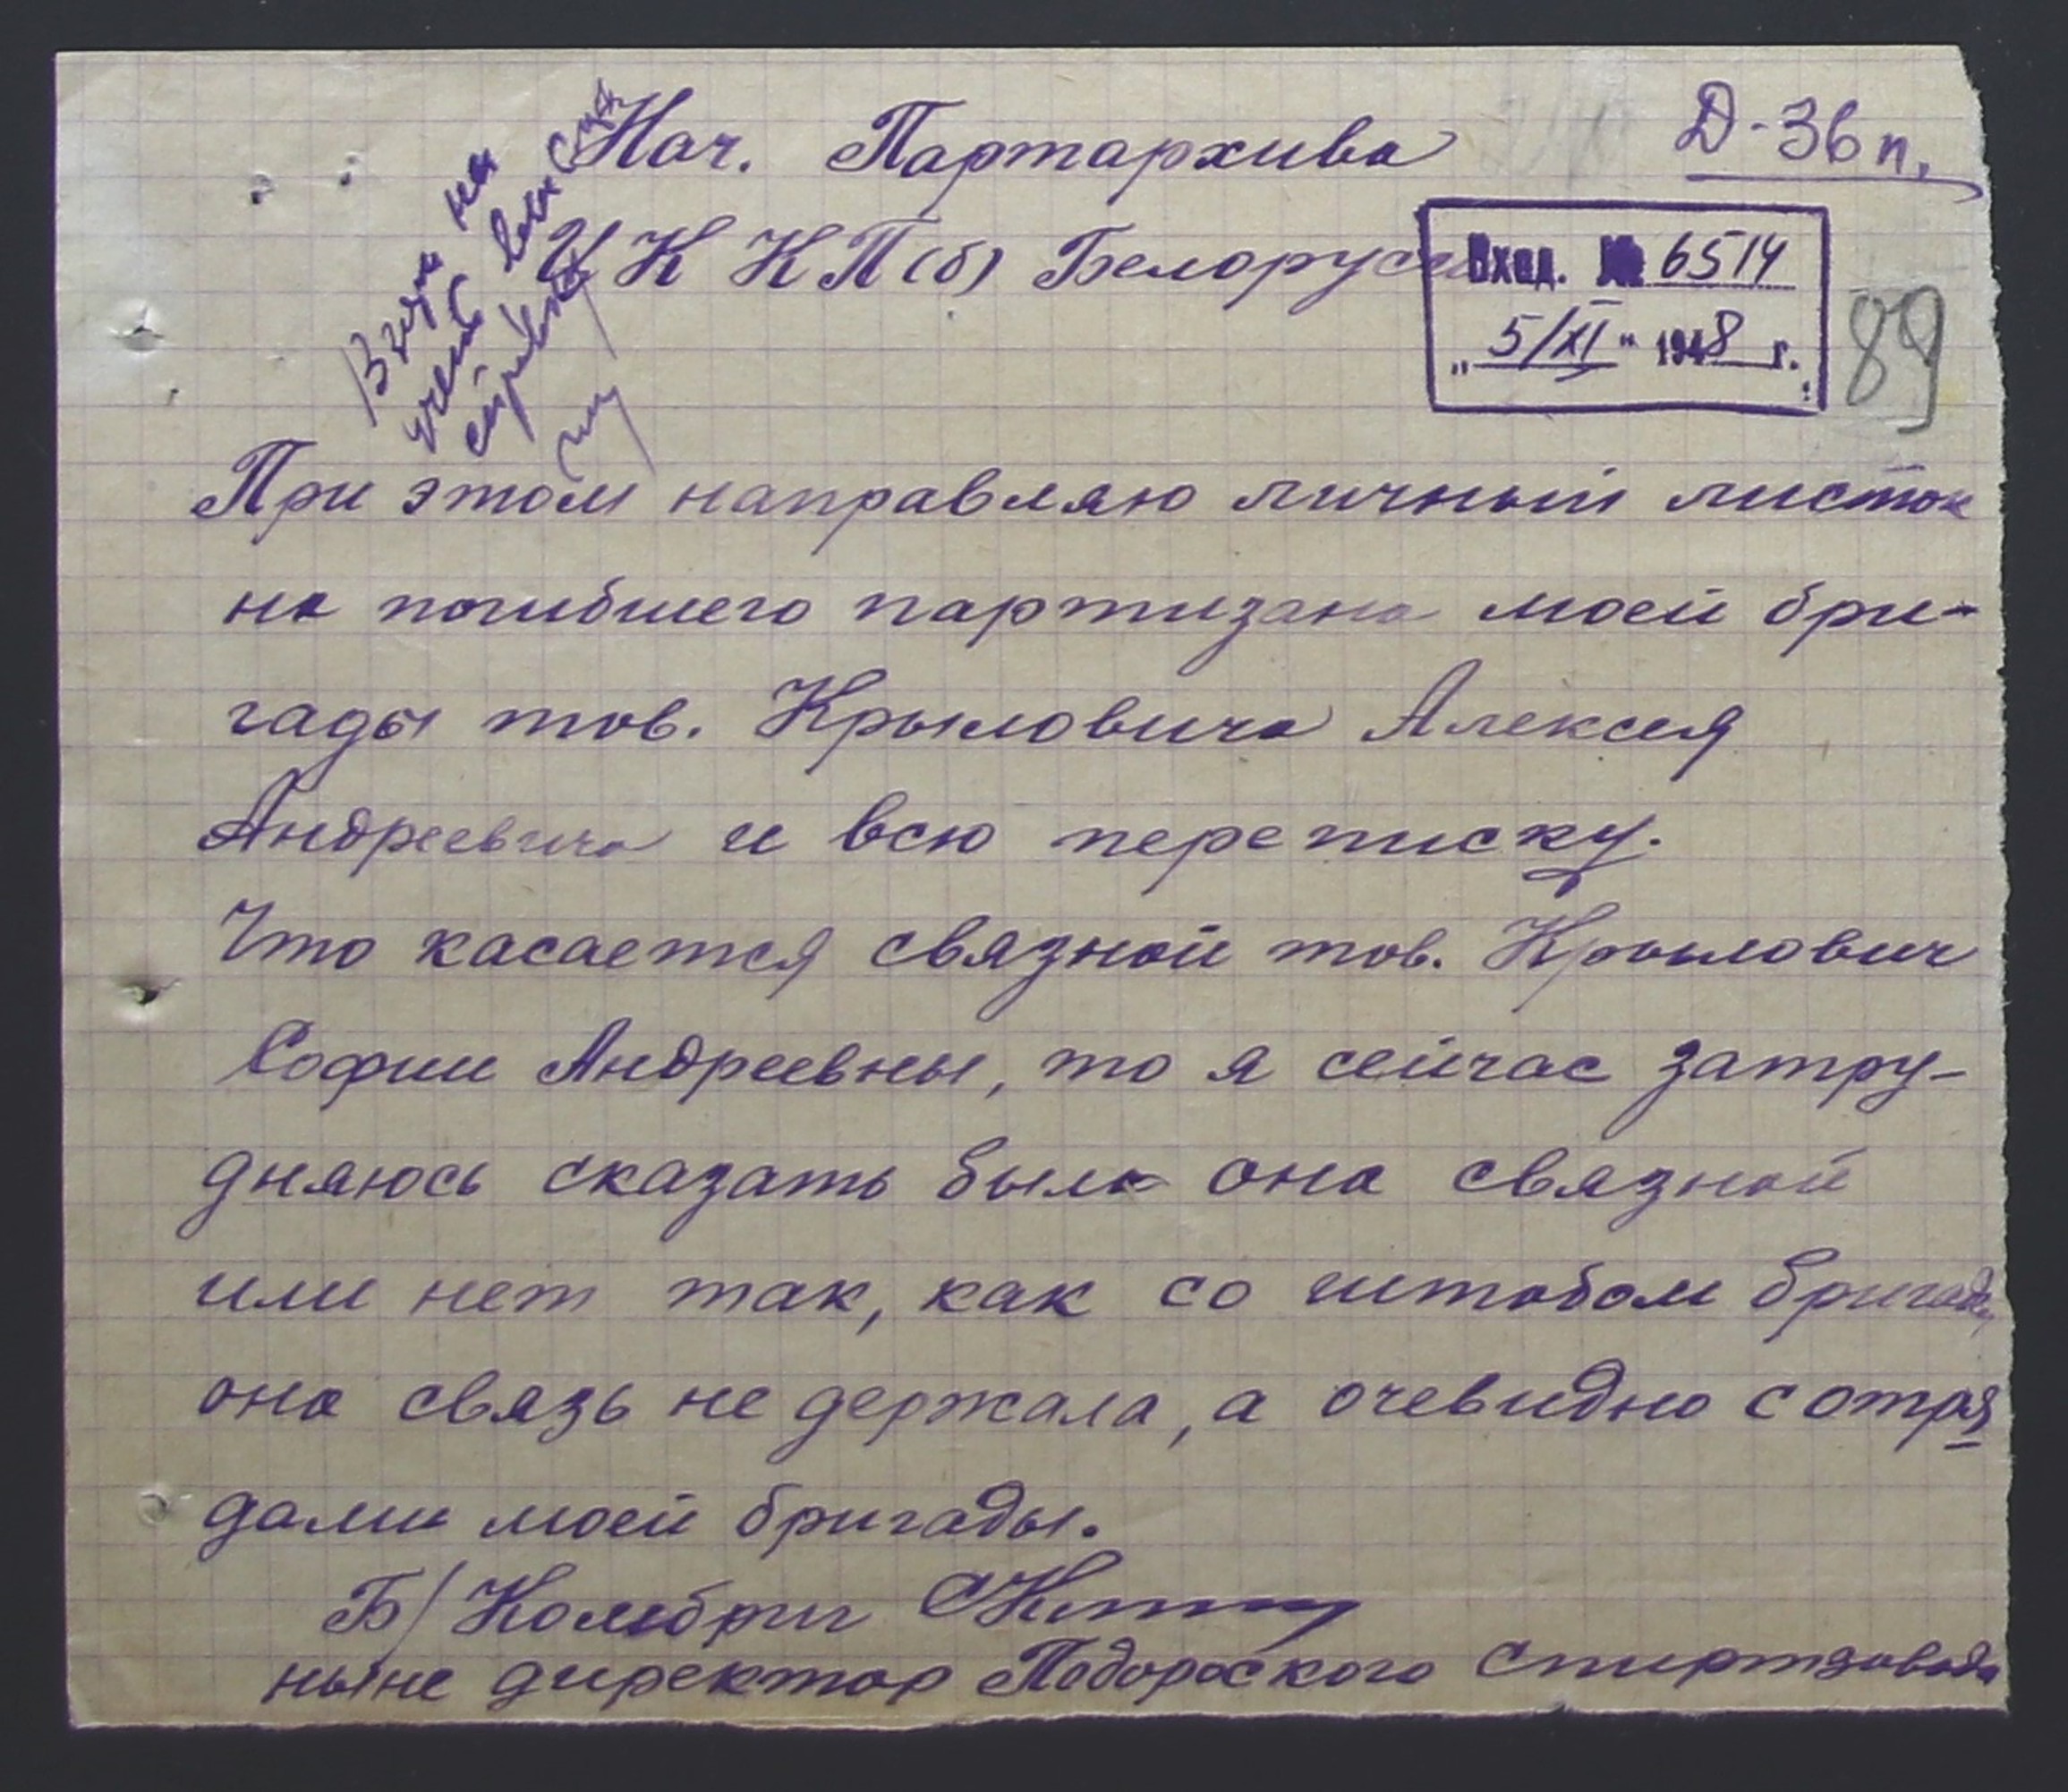 Д-36 п.
Нач. Партархива
ЦК КП(б) Белоруссии
Вход. № 6514
"5/XI" 1948 г.
89
Взять на
учет
справку
При этом направляю личный листок
на погибшего партизана моей бри-
гады тов. Крыловича Алексея
Андреевича и всю переписку.
Что касается связной тов. Крылович
Софии Андреевны, то я сейчас затру-
дняюсь сказать была она связной
или нет так, как со штабом бригады
она связь не держала, а очевидно с отря
дами моей бригады.
Б/Комбриг
ныне директор Подороского Спиртзавода